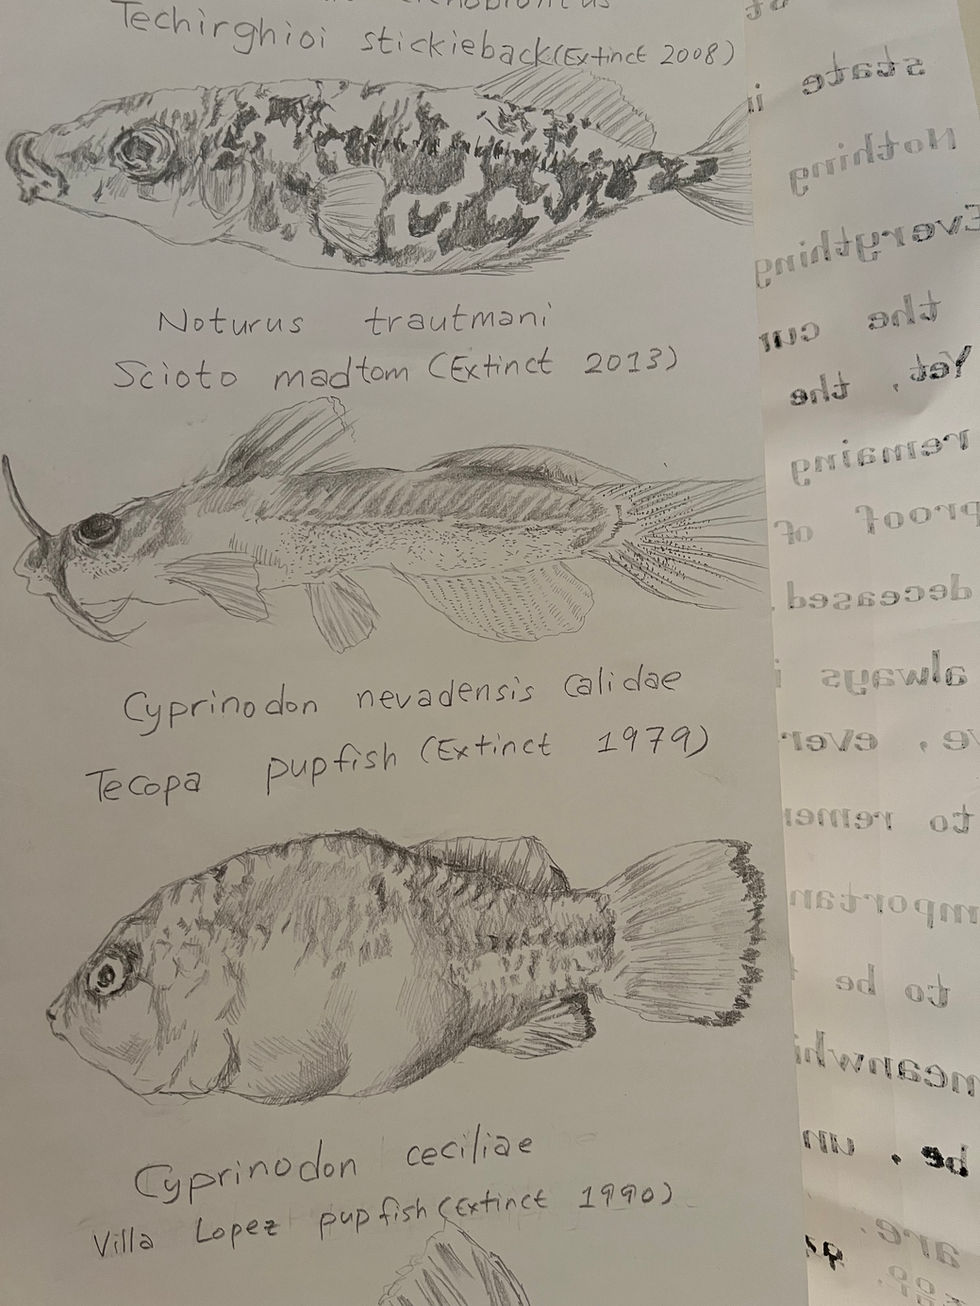 Techirghioi stickieback(Extinct 2008)
Noturus trautmani
Scioto madtom (Extinct 2013)
Cyprinodon nevadensis calidae
Tecopa pupfish (Extinct 1979)
Cyprinodon ceciliae
Villa Lopez pupfish (Extinct 1990)
state
Nothing
Everything
the
Yet, the
remaing
proof of
deceased.
always
to
to be
be,
are.